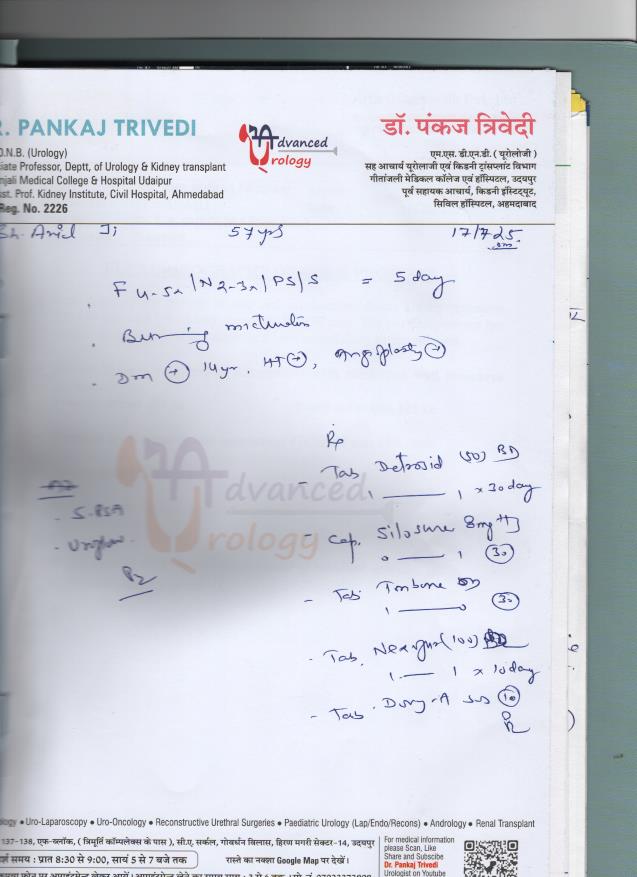 R. PANKAJ TRIVEDI
D.N.B. (Urology)
iate Professor, Deptt. of Urology & Kidney transplant
njali Medical College & Hospital Udaipur
sst. Prof. Kidney Institute, Civil Hospital, Ahmedabad
Reg. No. 2226
Advanced
Urology
डॉ. पंकज त्रिवेदी
एम.एस. डी.एन.बी. ( यूरोलोजी )
सह आचार्य यूरोलाजी एवं किडनी ट्रांसप्लांट विभाग
गीतांजली मेडिकल कॉलेज एवं हॉस्पिटल, उदयपुर
पूर्व सहायक आचार्य, किडनी इंस्टिट्यूट,
सिविल हॉस्पिटल, अहमदाबाद
Sh. Anil Ji 57 yrs 17/7/25
F 4-5x / N 2-3x / PS/S = 5 day
Burning micturition
Dm + 14 yr, HT +, angioplasty +
Rx
- Tab Detrosid (50) BD
1 — 1 x 30 day
- S. PSA
- Cap. Silosure 8mg
0 — 1 30
- Tab. OD
1 — 0 30
- Tab. (100) BD
1 — 1 x 10 day
- Tab. SOS 10
Advanced
Urology
ology • Uro-Laparoscopy • Uro-Oncology • Reconstructive Urethral Surgeries • Paediatric Urology (Lap/Endo/Recons) • Andrology • Renal Transplant
137-138, एफ-ब्लॉक, ( त्रिमूर्ति कॉम्पलेक्स के पास ), सी.ए. सर्कल, गोवर्धन विलास, हिरण मगरी सेक्टर-14, उदयपुर
र्श समय : प्रात 8:30 से 9:00, सायं 5 से 7 बजे तक
रास्ते का नक्शा Google Map पर देखें।
For medical information
please Scan, Like
Share and Subscibe
Dr. Pankaj Trivedi
Urologist on Youtube